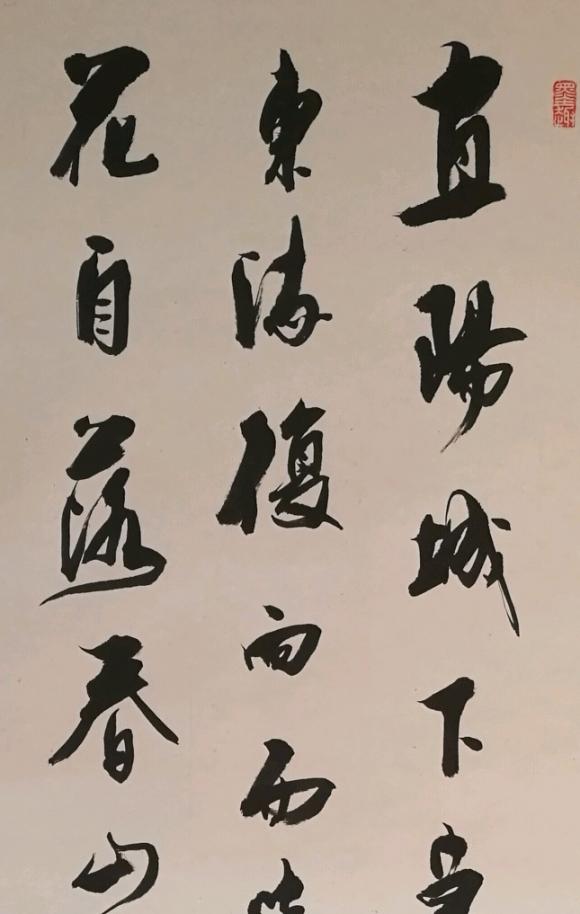 宜陽城下草
東流復向西芳
花自落春山